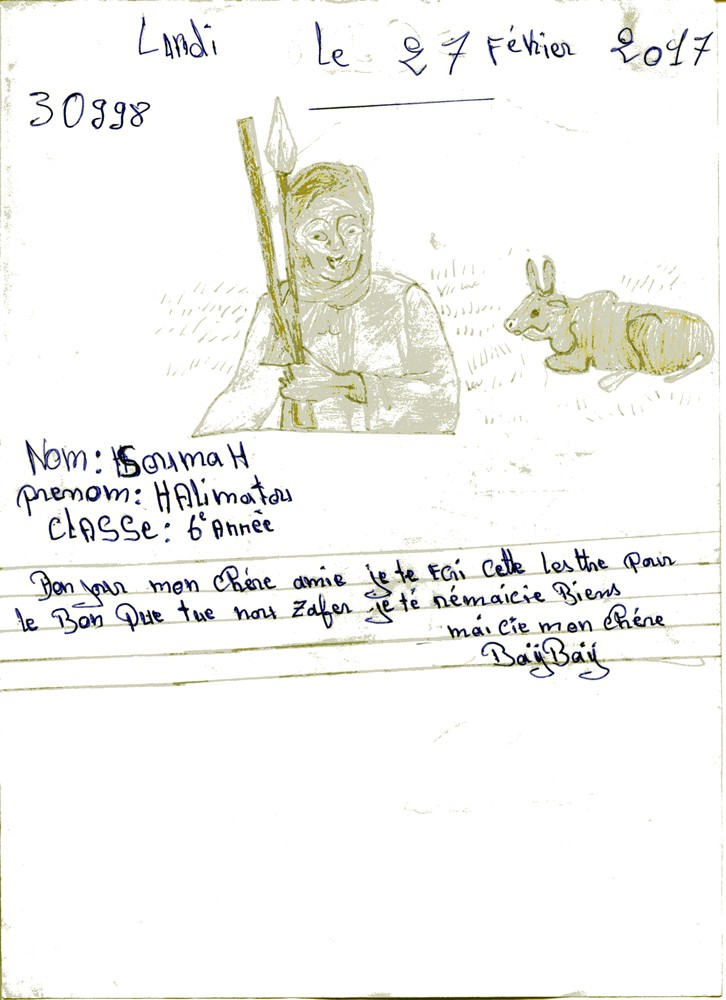 Landi Le 27 Février 2017
30998
Nom: Soumah
prenom: HAlimatou
ClASSe: 6e Année
Bon jour mon chére amie je te Fai cette lesttre pour
le Bon Que tue nous zafer je té rémaicie Biens
mai cie mon chére
BaÿBaÿ